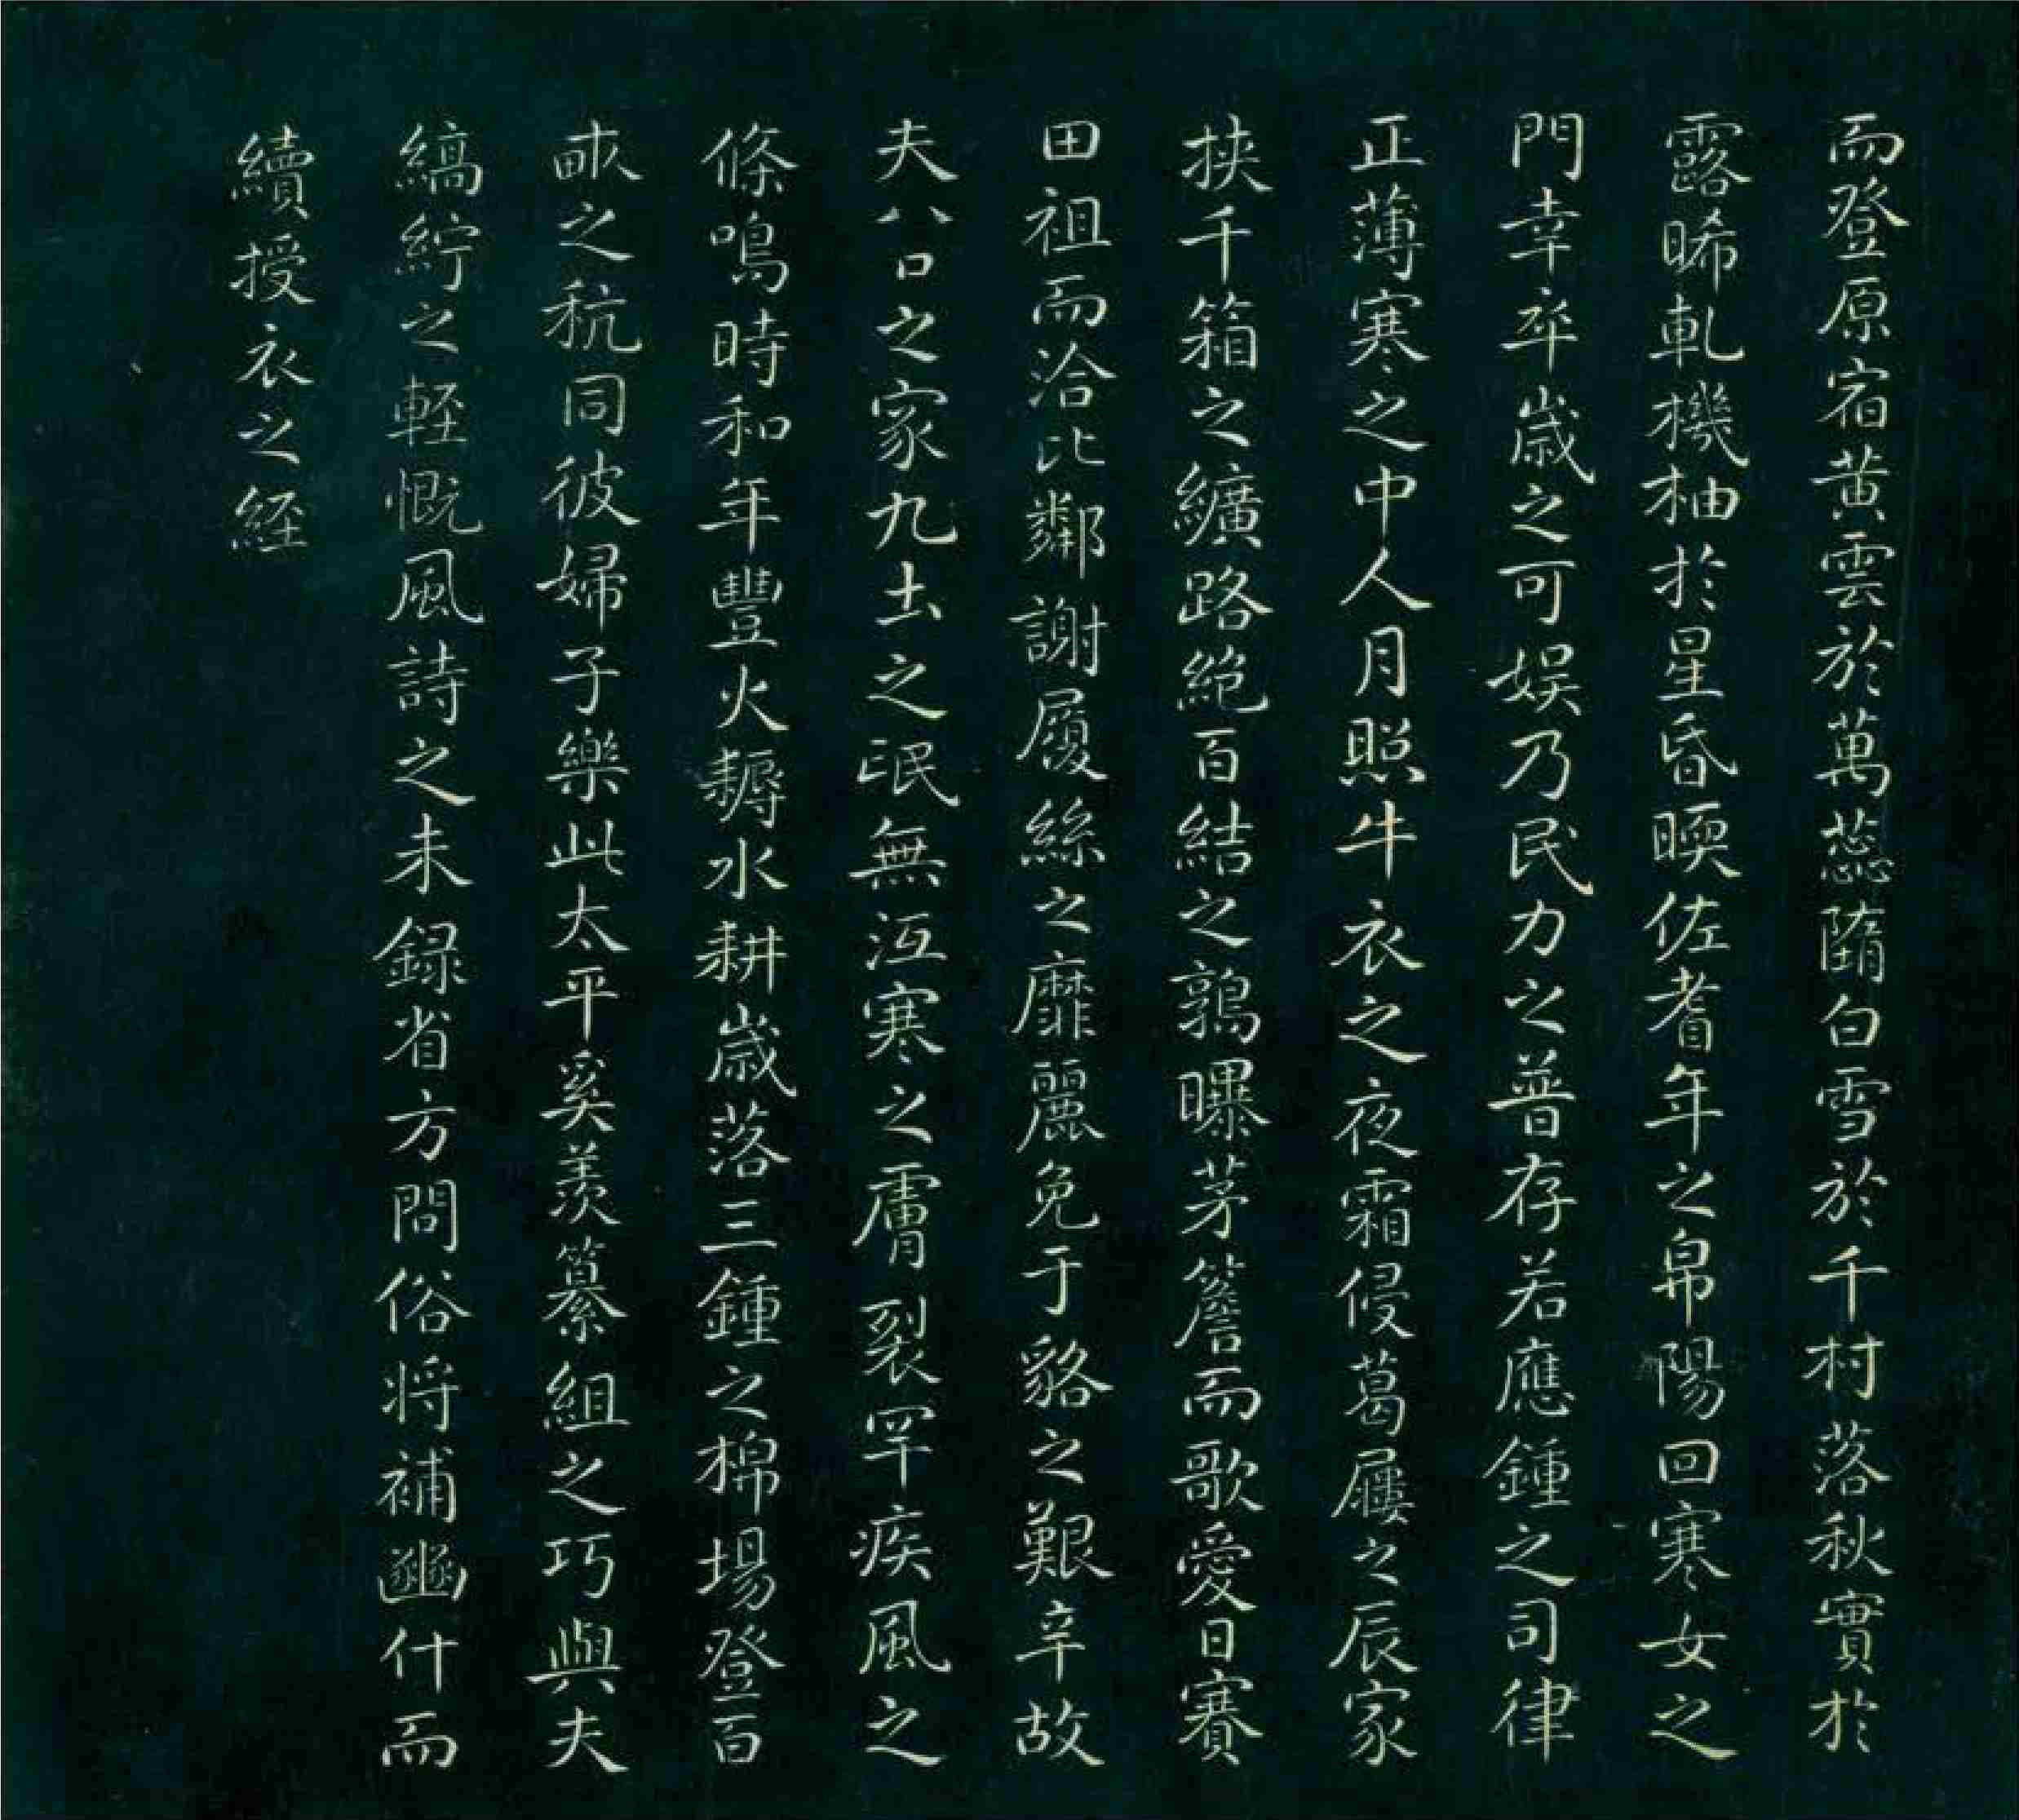 而登原宿黄雲於萬蕊隋白雪於千村落秋實於
露晞軋機柚於星昏暝佐耆年之帛陽回寒女之
門幸卒歲之可娱乃民力之普存若應鍾之司律
正薄寒之中人月照牛衣之夜霜侵葛屨之辰家
挟千箱之纊路絶百結之鶉曝茅簷而歌愛日賽
田祖而洽比鄰謝履絲之靡麗免于貉之艱辛故
夫八口之家九土之氓無沍寒之膚裂罕疾風之
條鳴時和年豐火耨水耕歲落三鍾之棉場登百
畝之秔同彼婦子樂此太平奚羨纂組之巧與夫
縞紵之輕慨風詩之未録省方問俗将補豳什而
續授衣之經